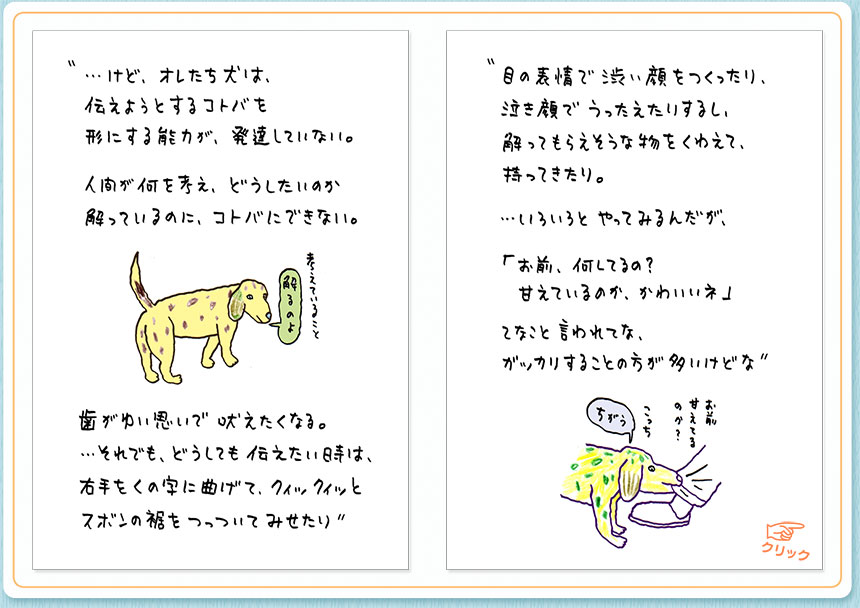 “…けど、オレたち犬は、
伝えようとするコトバを
形にする能力が、発達していない。
人間が何を考え、どうしたいのか
解っているのに、コトバにできない。
考えていること
解るのよ
歯がゆい思いで吠えたくなる。
…それでも、どうしても伝えたい時は、
右手をくの字に曲げて、クィックィッと
ズボンの裾をつっついてみせたり”
“目の表情で渋い顔をつくったり、
泣き顔でうったえたりするし、
解ってもらえそうな物をくわえて、
持ってきたり。
…いろいろとやってみるんだが、
「お前、何してるの?
甘えているのか、かわいいネ」
てなこと言われてな、
ガッカリすることの方が多いけどな”
お前
甘えてる
のか?
こっち
ちがう
クリック